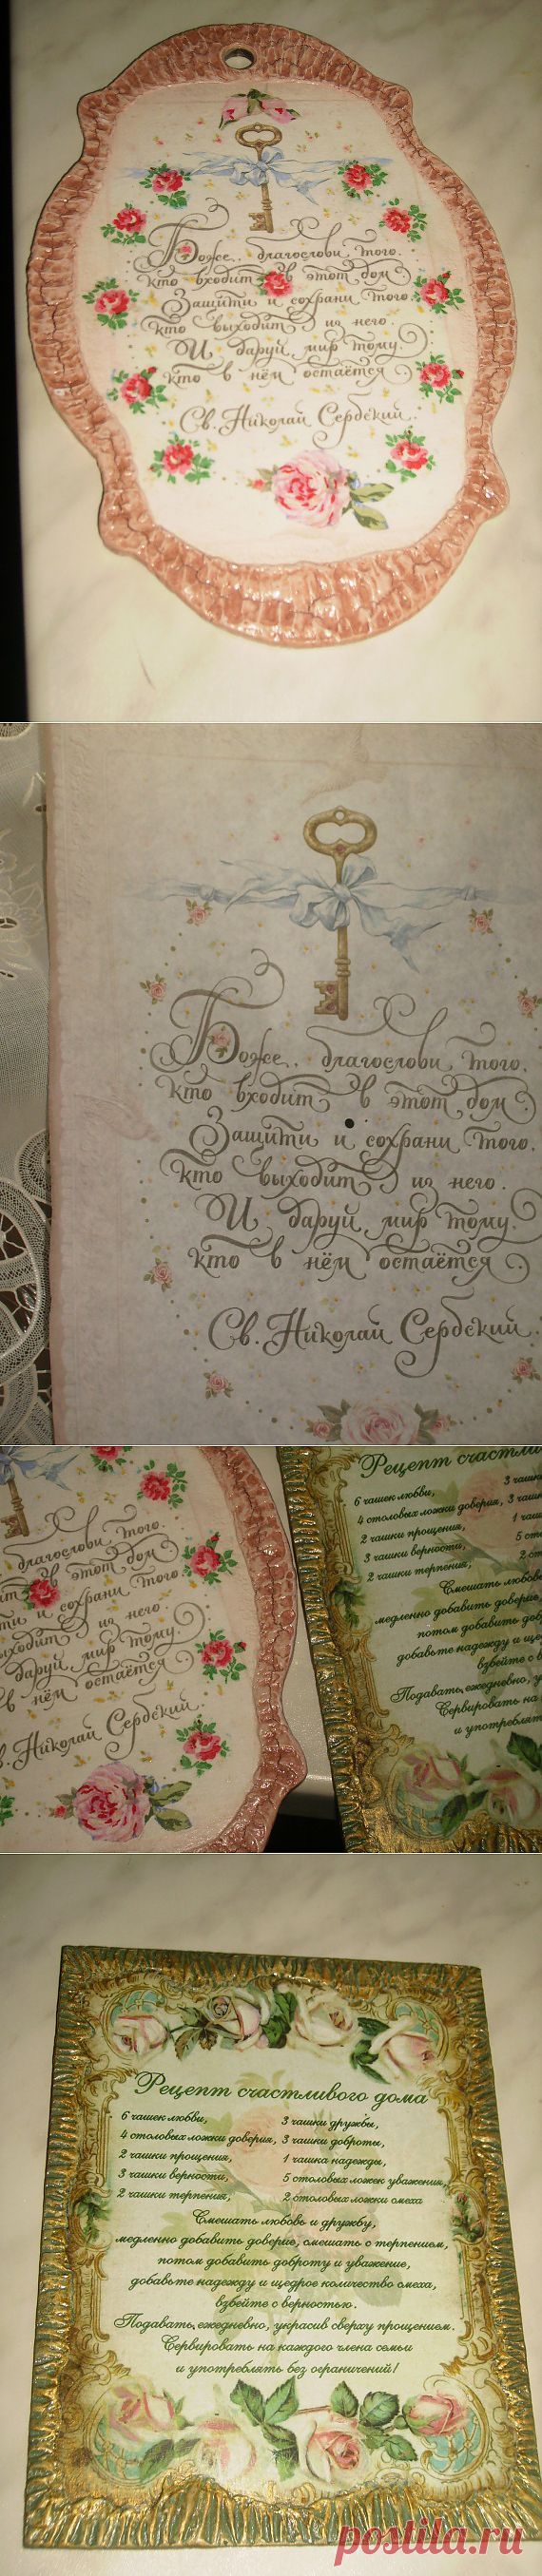 Боже, благослови того,
кто входит в этот дом
Защити и сохрани того,
кто выходит из него.
И даруй мир тому,
кто в нём остаётся
Св. Николай Сербский.
Боже, благослови того,
кто входит в этот дом
Защити и сохрани того,
кто выходит из него.
И даруй мир тому,
кто в нём остаётся
Св. Николай Сербский.
благослови того.
в этот дом
и сохрани того
выходит из него.
даруй мир тому.
в нём остаётся
Николай Сербский.
Рецепт
6 чашек любви,
4 столовых ложки доверия, 3
2 чашки прощения, 1
3 чашки верности, 5
2 чашки терпения, 2
Смешать
медленно добавить
потом добавить
добавьте надежду и
взбейте с
Подавать, ежедневно,
Сервировать на
и
Рецепт счастливого дома
6 чашек любви, 3 чашки дружбы,
4 столовых ложки доверия, 3 чашки доброты,
2 чашки прощения, 1 чашка надежды,
3 чашки верности, 5 столовых ложек уважения,
2 чашки терпения, 2 столовых ложки смеха
Смешать любовь и дружбу,
медленно добавить доверие, смешать с терпением,
потом добавить доброту и уважение,
добавьте надежду и щедрое количество смеха,
взбейте с верностью.
Подавать, ежедневно, украсив сверху прощением.
Сервировать на каждого члена семьи
и употреблять без ограничений!
postila.ru